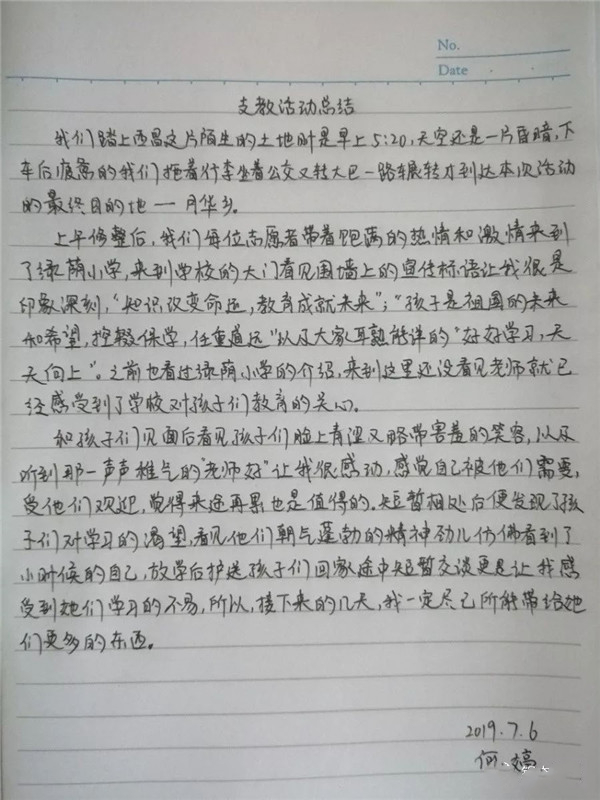 No.
Date
支教活动总结
我们踏上西昌这片陌生的土地时是早上5:20,天空还是一片昏暗,下
车后疲惫的我们拖着行李坐着公交又转大巴一路辗转才到达本次活动
的最终目的地一月华乡。
上午修整后,我们每位志愿者带着饱满的热情和激情来到
了绿荫小学,来到学校的大门看见围墙上的宣传标语让我很是
印象深刻,“知识改变命运,教育成就未来”;“孩子是祖国的未来
和希望,控辍保学,任重道远”以及大家耳熟能详的“好好学习,天
天向上”。之前也看过绿荫小学的介绍,来到这里还没看见老师就已
经感受到了学校对孩子们教育的关心。
和孩子们见面后看见孩子们脸上青涩又略带害羞的笑容,以及
听到那一声声稚气的“老师好”让我很感动,感觉自己被他们需要,
受他们欢迎,觉得来途再累也是值得的。短暂相处后便发现了孩
子们对学习的渴望,看见他们朝气蓬勃的精神劲儿仿佛看到了
小时候的自己,放学后护送孩子们回家途中短暂交谈更是让我感
受到她们学习的不易,所以,接下来的几天,我一定尽己所能带给她
们更多的东西。
2019.7.6
何婷